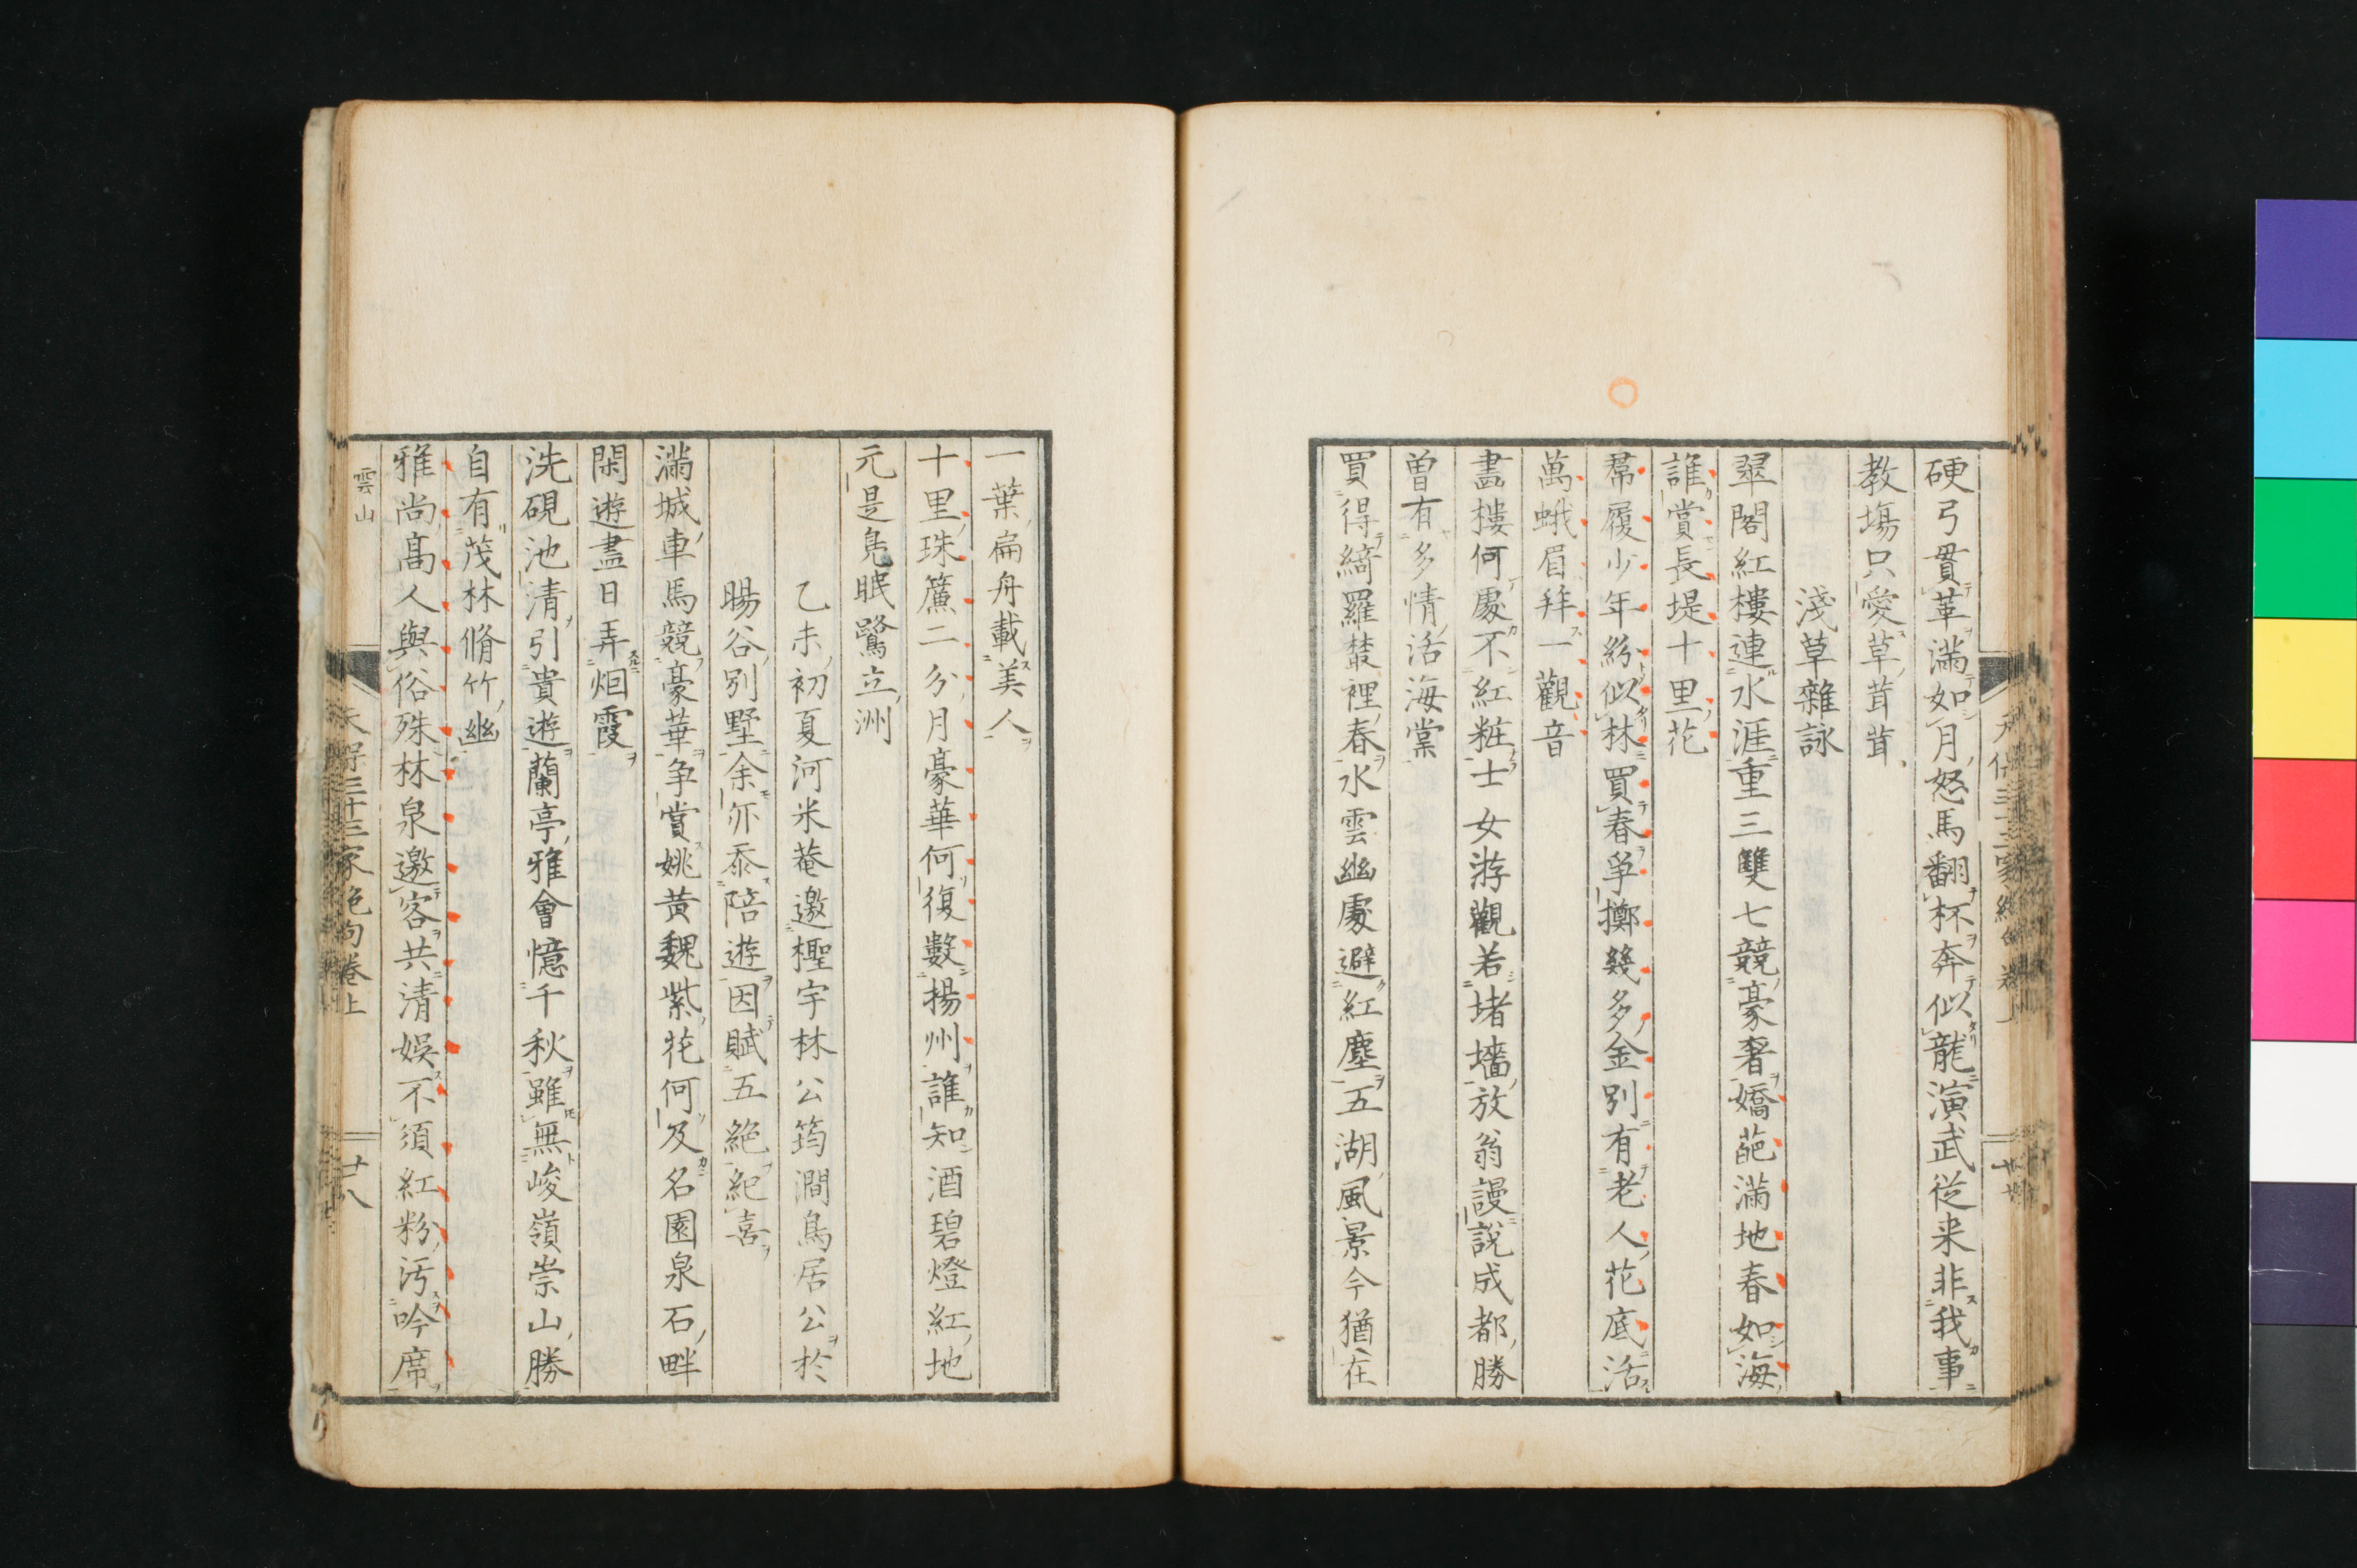 硬弓貫革滿如月怒馬翻杯奔似龍演武從来非我事
教塲只愛草茸茸
淺草雜詠
翠閣紅樓連水涯重三雙七競豪奢嬌葩滿地春如海
誰賞長堤十里花
帬履少年紛似林買春爭擲幾多金別有老人花底活
萬蛾眉拜一觀音
畵樓何處不紅粧士女游觀若堵墻放翁謾說成都勝
曽有多情活海棠
買得綺羅叢裡春水雲幽處避紅塵五湖風景今猶在
一葉扁舟載美人
十里珠簾二分月豪華何復數揚州誰知酒碧燈紅地
元是鳧眠鷺立洲
乙未初夏河米菴邀檉宇林公筠澗鳥居公於
暘谷別墅余亦忝陪遊因賦五絶紀喜
滿城車馬競豪華争賞姚黄魏紫花何及名園泉石畔
閑遊盡日弄烟霞
洗硯池清引貴遊蘭亭雅會憶千秋雖無峻嶺崇山勝
自有茂林脩竹幽
雅尚高人與俗殊林泉邀客共清娯不須紅粉汚吟席
雲山
天保三十三家絶句卷上
廿八